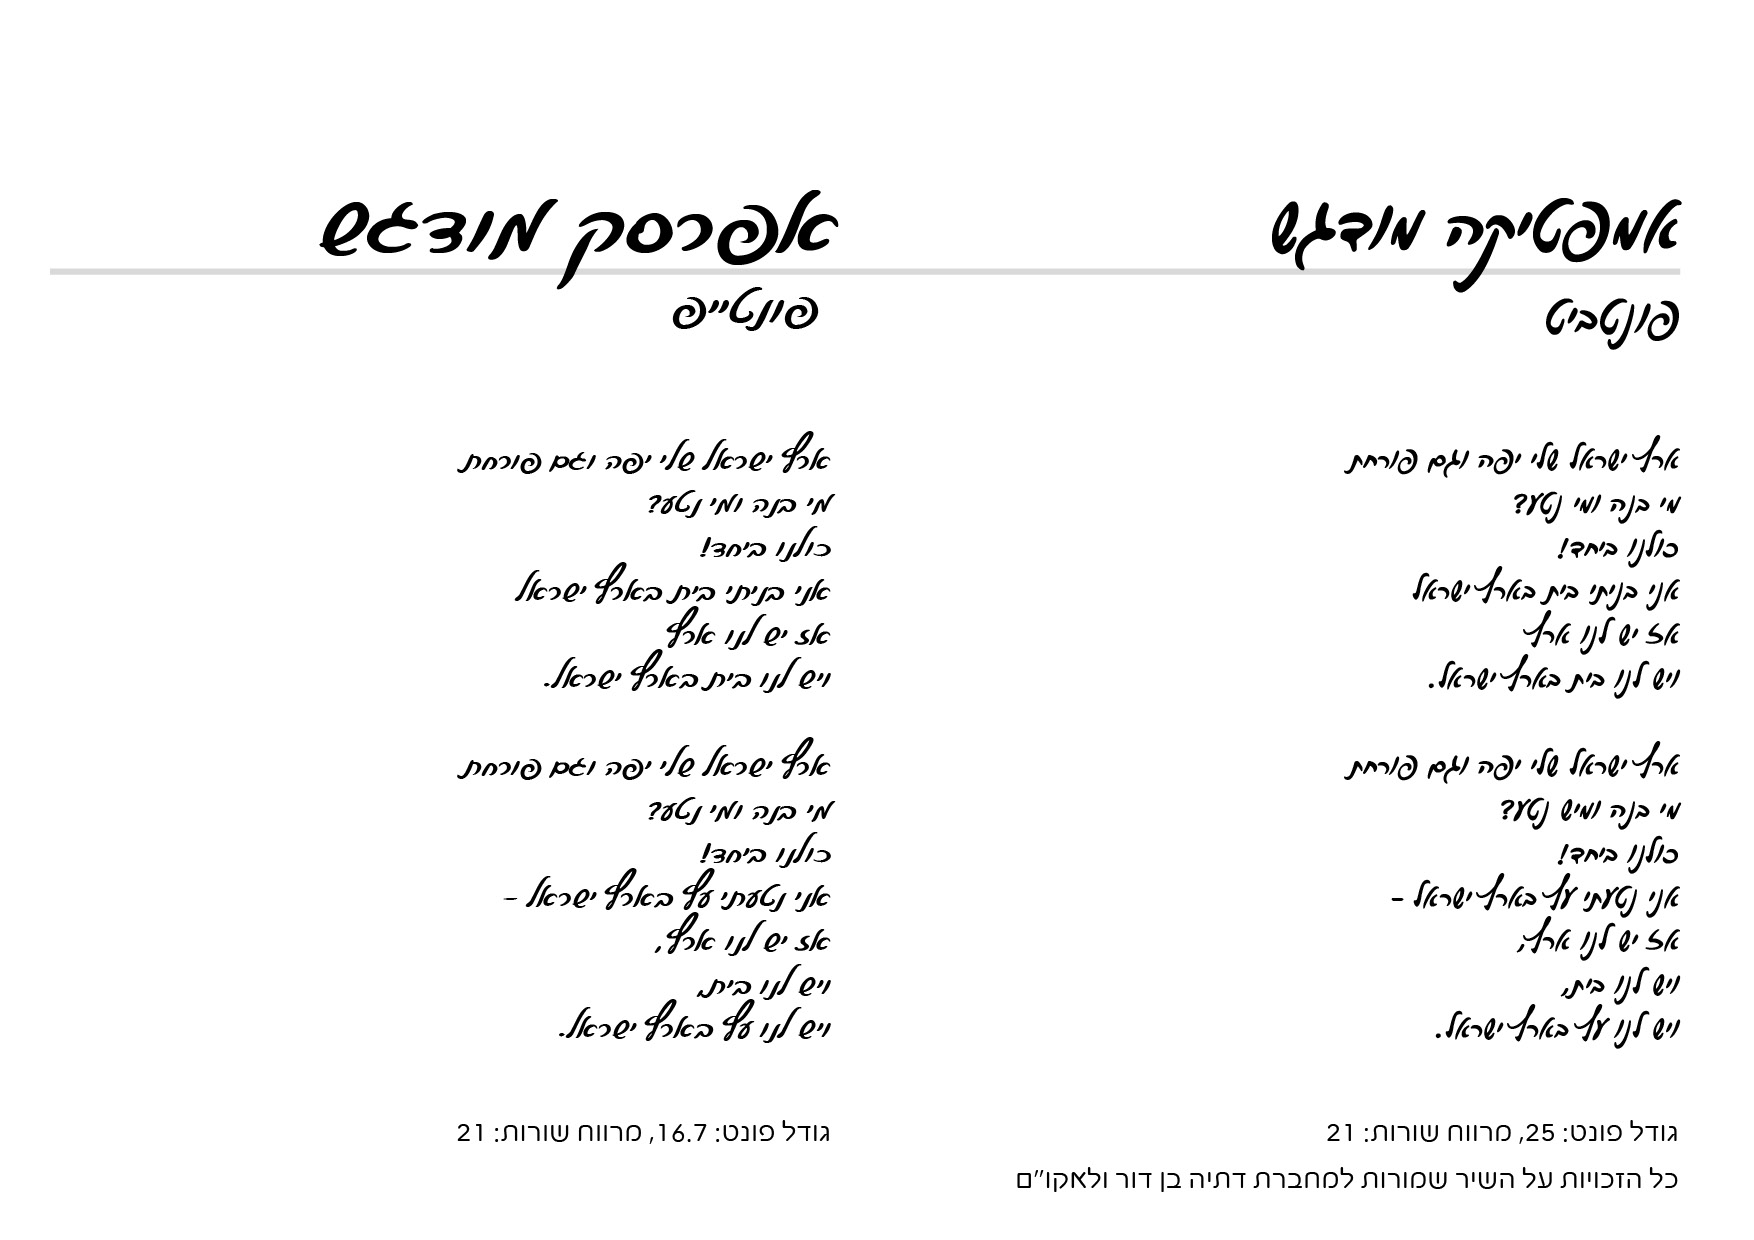 אמפטיקה מודגש
פונטביט
ארץ ישראל שלי יפה וגם פורחת
מי בנה ומי נטע?
כולנו ביחד!
אני בניתי בית בארץ ישראל
אז יש לנו ארץ
ויש לנו בית בארץ ישראל.
ארץ ישראל שלי יפה וגם פורחת
מי בנה ומיש נטע?
כולנו ביחד!
אני נטעתי עץ בארץ ישראל –
אז יש לנו ארץ,
ויש לנו בית,
ויש לנו עץ בארץ ישראל.
גודל פונט: 25, מרווח שורות: 21
אפרסק מודגש
פונטייפ
ארץ ישראל שלי יפה וגם פורחת
מי בנה ומי נטע?
כולנו ביחד!
אני בניתי בית בארץ ישראל
אז יש לנו ארץ
ויש לנו בית בארץ ישראל.
ארץ ישראל שלי יפה וגם פורחת
מי בנה ומי נטע?
כולנו ביחד!
אני נטעתי עץ בארץ ישראל –
אז יש לנו ארץ,
ויש לנו בית,
ויש לנו עץ בארץ ישראל.
גודל פונט: 16.7, מרווח שורות: 21
כל הזכויות על השיר שמורות למחברת דתיה בן דור ולאקו"ם